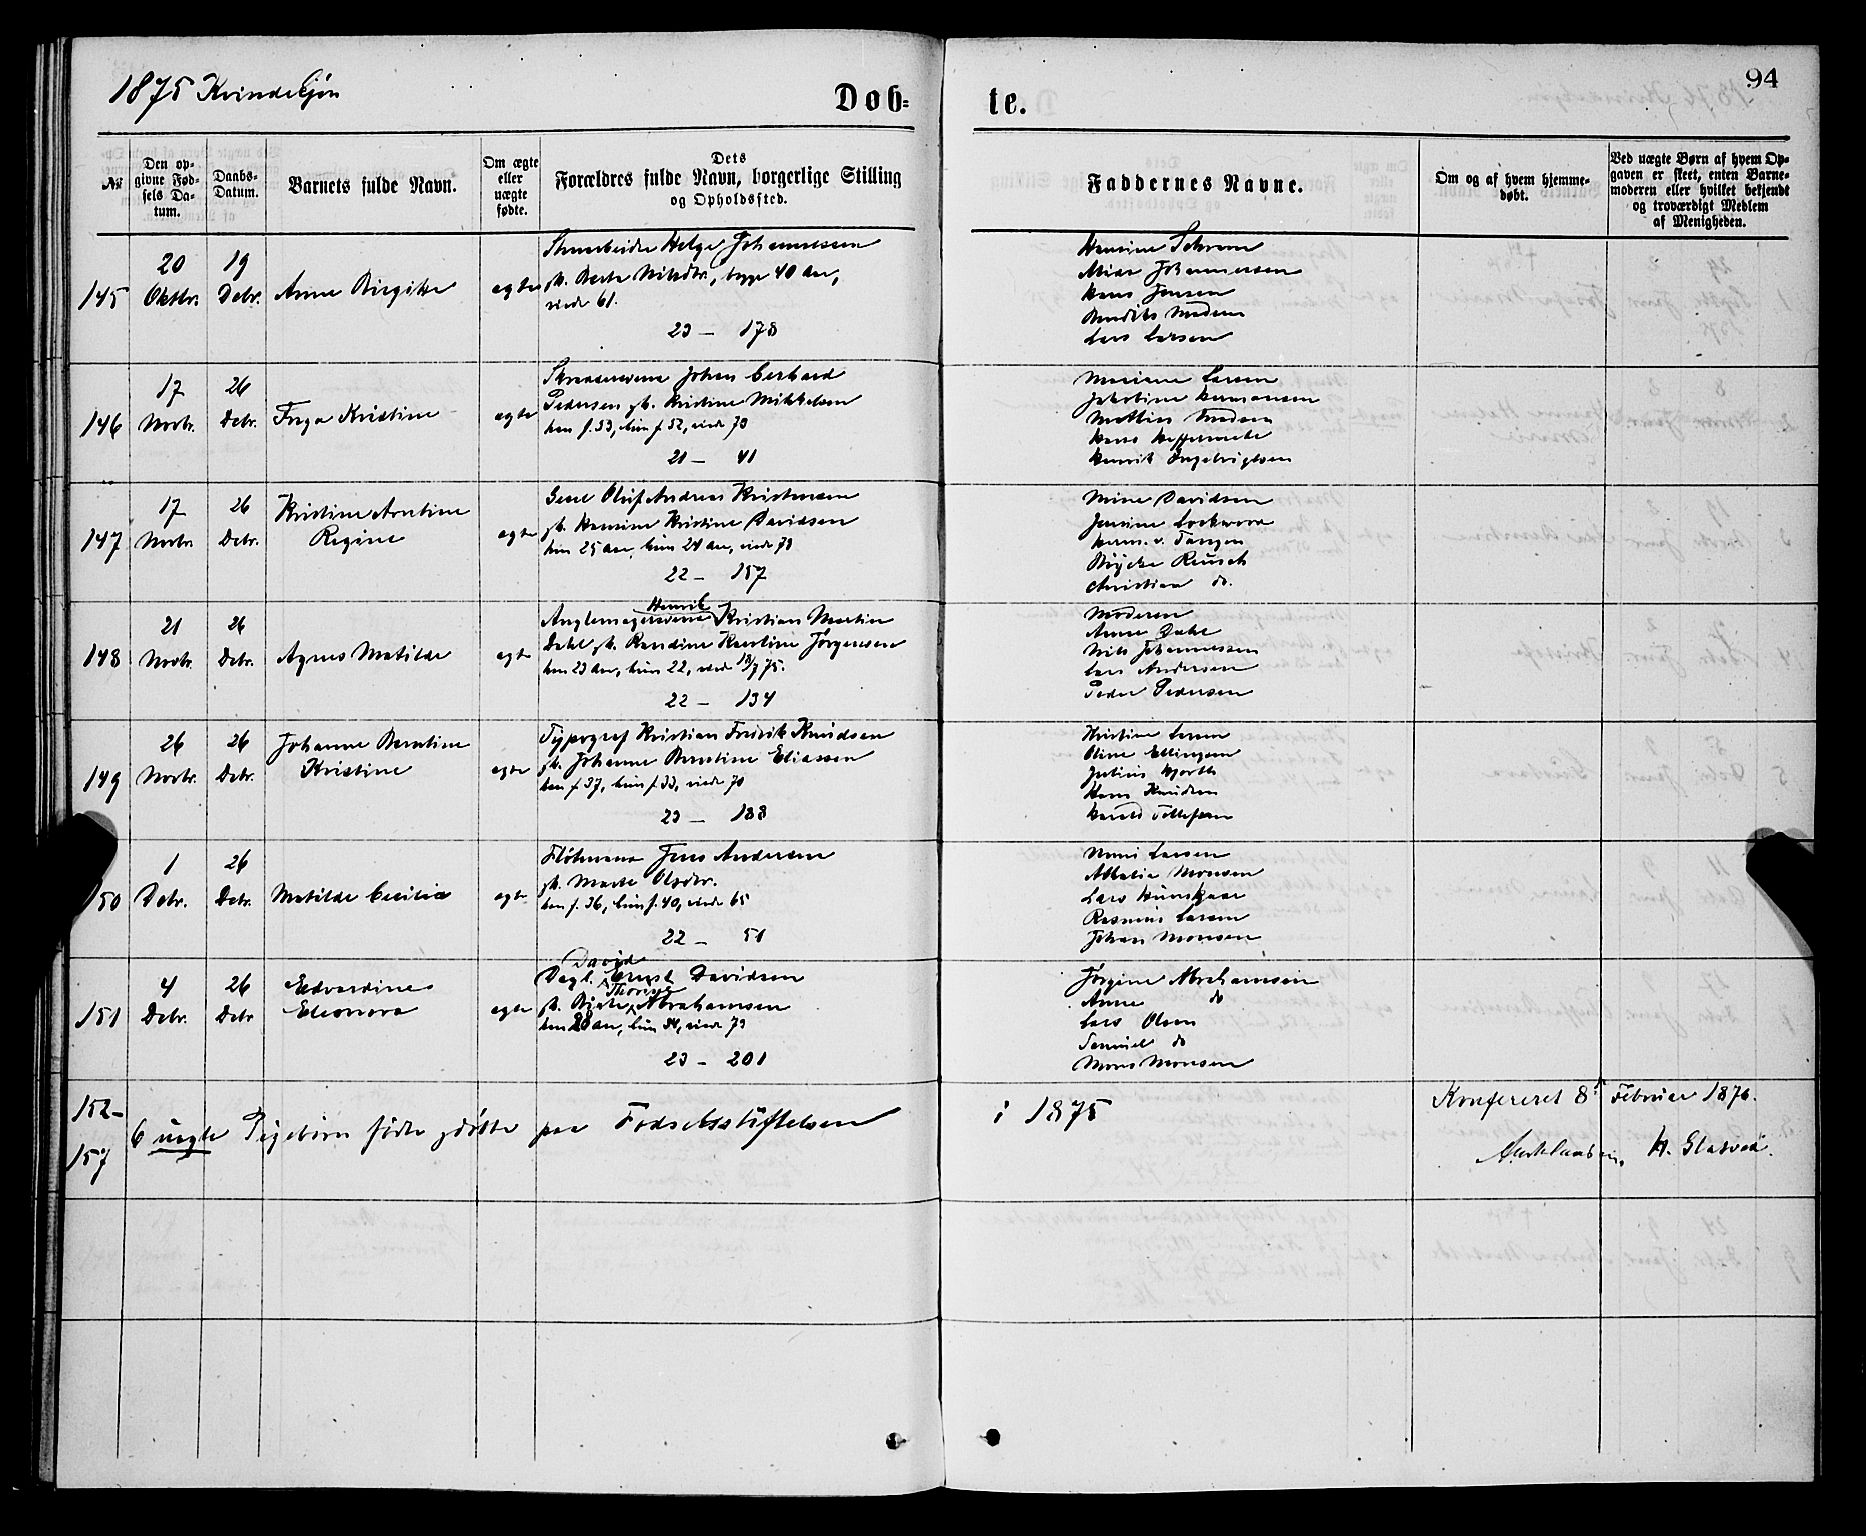 1875 Kvindekjøn
Døb-
te.
94
№
Den op-
givne Fød-
sels Da-
tum.
Daabs-
Datum.
Barnets fulde Navn.
Om ægte
eller
uægte
fødte.
Dets
Forældres fulde Navn, borgerlige Stilling
og Opholdssted.
Faddernes Navne.
Om og af hvem hjemme-
døbt.
Ved uægte Børn af hvem Op-
gaven er skeet, enten Barne-
moderen eller hvilket bekjendt
og troværdigt Medlem
af Menigheden.
145
20
Oktbr.
19
Debr.
Anne Birgitte
ægte
Helge Johannessen
gh. Berte Nilsdtr., begge 40 Aar,
viede 61.
23 – 178
Hansine Schrøm
Johannessen
Hans Jensen
Bendikt Madsen
Lars Larsen
146
17
Novbr.
26
Debr.
Inga Kristine
ægte
Skræddersvend Johan Gerhard
Pedersen gh. Kristine Mikkelsen
han f. 53, hun f. 52, viede 73
21 – 41
Mariane Larsen
Jakobine Hermansen
Mathias Madsen
Hans
Henrik Ingebrigtsen
147
17
Novbr.
26
Debr.
Kristine Arntine
Regine
ægte
Oluf Andreas Kristensen
gh. Hansine Kristine Davidsen
han 25 Aar, hun 24 Aar, viede 73
22 – 157
Mine Davidsen
Jensine
Herm. v. Tangen
Reusch
Christian do.
148
21
Novbr.
26
Debr.
Agnes Matilde
ægte
Henrik
Anglemagersvend Kristian Martin
Dahl gh. Randine Karoline Jørgensen
han 23 Aar, hun 22, viede 18/7 75.
22 – 134
Moderen
Anne Dahl
Nils Johannessen
Lars Andersen
Peder Pedersen
149
26
Novbr.
26
Debr.
Johanne Berntine
Kristine
ægte
Typograf Kristian Fredrik Knudsen
gh. Johanne Berntine Eliassen
han f. 37, hun f. 33, viede 70
23 – 188
Kristine Larsen
Oline Ellingsen
Julius Hjorth
Hans Knudsen
Harald Tollefsen
150
1
Debr.
26
Debr.
Matilde Cecilie
ægte
Jens Andersen
gh. Marte Olsdtr.
han f. 36, hun f. 40, viede 65
22 – 51
Larsen
Monsen
Lars
Rasmus Larsen
Johan Monsen
151
4
Debr.
26
Debr
Edvardine
Eleonora
ægte
David
Dagl. Ernst Davidsen
Thorine
gh. Birte Abrahamsen
han 28 Aar, hun 34, viede 73
23 – 201
Jørgine Abrahamsen
Anne do
Lars Olsen
Samuel do
Mons Monsen
152–
157
6 uægte Pigebørn fødte & døbte paa Fødselsstiftelsen i 1875
Konfereret 8 Februar 1876.